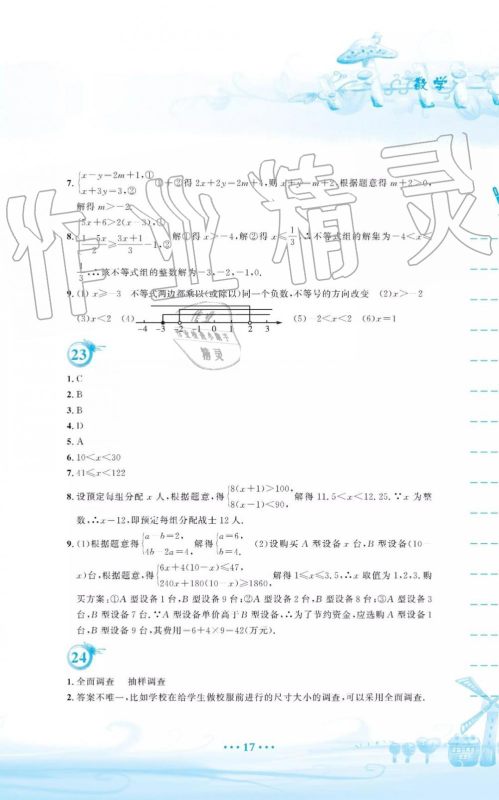 数学
7. {x-y=2m+1,① x+3y=3,② ①+②得 2x+2y=2m+4,则 x+y=m+2.根据题意得 m+2>0,
解得 m>-2.
8. {5x+6>2(x-3),① (1-5x)/2≥(3x+1)/3-1,② 解①得 x>-4,解②得 x≤1/3,∴不等式组的解集为-4<x≤
1/3.∴该不等式组的整数解为-3,-2,-1,0.
9. (1)x≥-3 不等式两边都乘以(或除以)同一个负数,不等号的方向改变 (2)x>-2
(3)x<2 (4) -4 -3 -2 -1 0 1 2 3 4 (5) -2<x<2 (6)x=1
23
1. C
2. B
3. B
4. D
5. A
6. 10<x<30
7. 41≤x<122
8. 设预定每组分配 x 人,根据题意,得{8(x+1)>100, 8(x-1)<90, 解得 11.5<x<12.25.∵x 为整
数,∴x=12,即预定每组分配战士 12 人.
9. (1)根据题意得{a-b=2, 4b-2a=4, 解得{a=6, b=4. (2)设购买 A 型设备 x 台,B 型设备(10-
x)台,根据题意得{6x+4(10-x)≤47, 240x+180(10-x)≥1860, 解得 1≤x≤3.5,∴x 取值为 1,2,3.购
买方案:①A 型设备 1 台,B 型设备 9 台;②A 型设备 2 台,B 型设备 8 台;③A 型设备 3
台,B 型设备 7 台.∵A 型设备单价高于 B 型设备,∴为了节约资金,应选购 A 型设备 1
台,B 型设备 9 台,其费用=6+4×9=42(万元).
24
1. 全面调查 抽样调查
2. 答案不唯一,比如学校在给学生做校服前进行的尺寸大小的调查,可以采用全面调查.
17
作业精灵